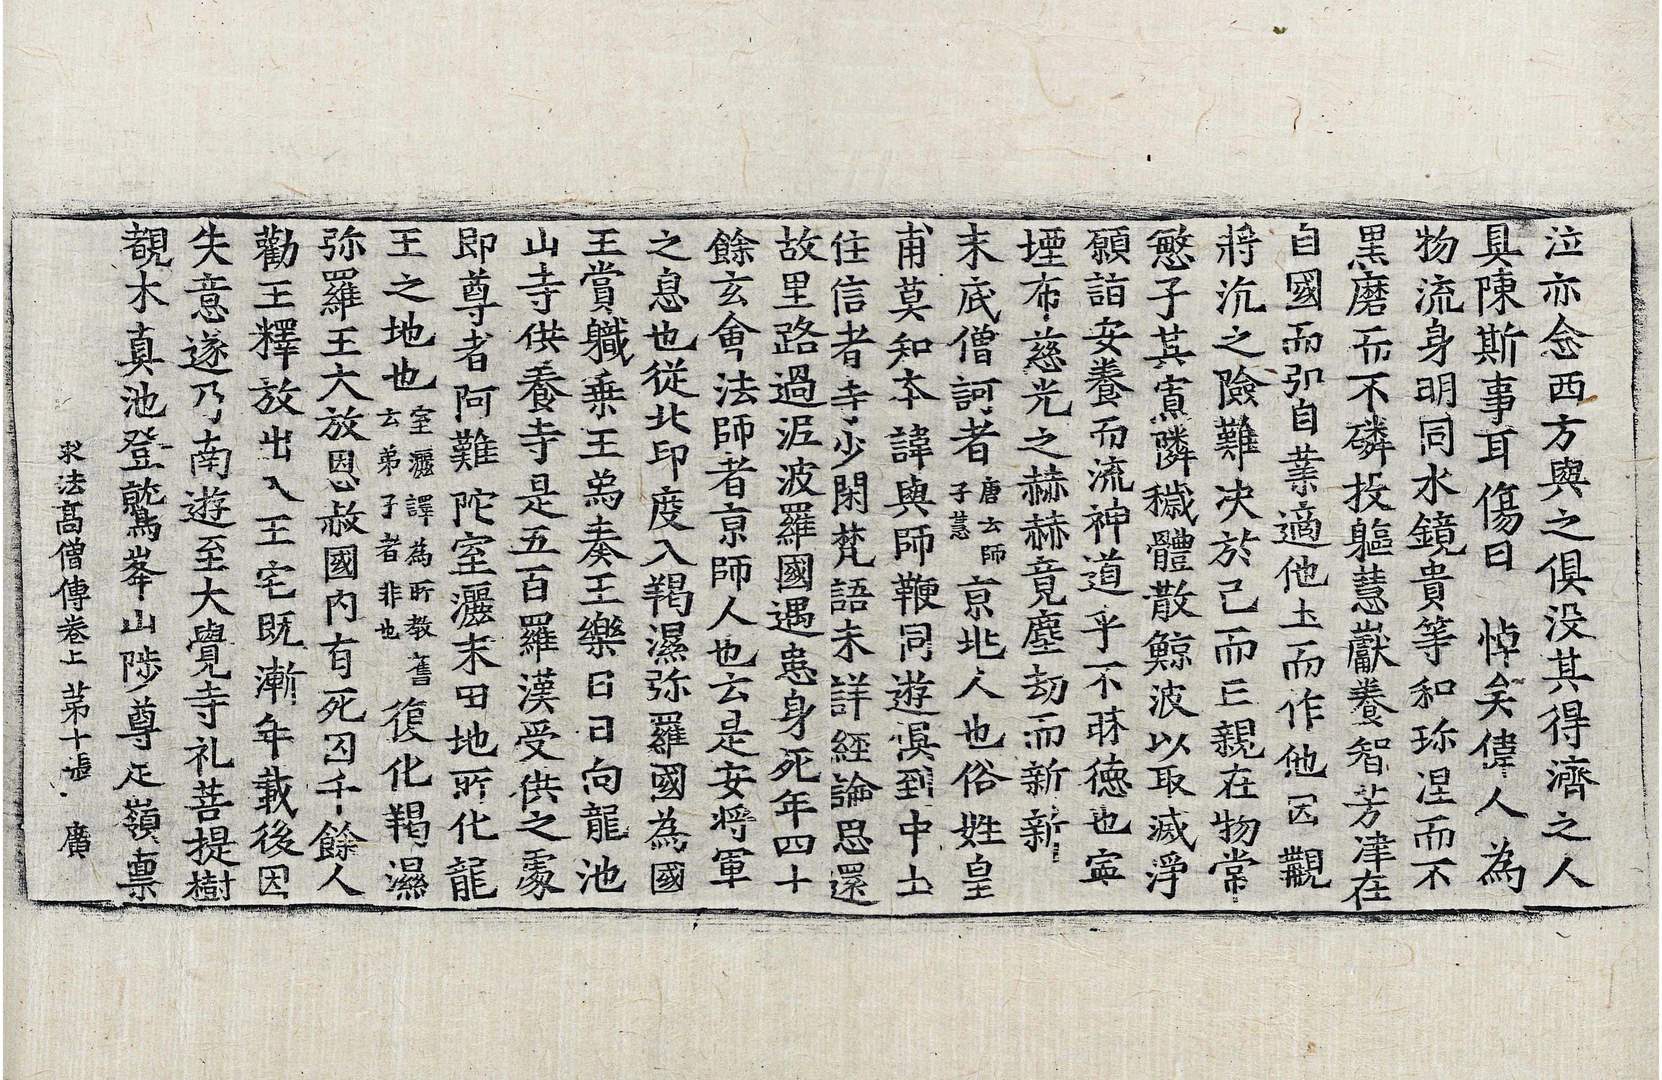 泣亦念西方與之俱没其得濟之人
具陳斯事耳傷曰　悼矣偉人為
物流身明同水鏡貴等和珎涅而不
黒磨而不磷投軀慧巘養智芳津在
自國而弘自業適他土而作他因覩
將沉之險難决於己而亡親在物常
慜子其寡隣穢體散鯨波以取滅淨
願詣安養而流神道乎不昧德也寧
堙布慈光之赫赫竟塵劫而新新
末底僧訶者唐云師子慧京北人也俗姓皇
甫莫知夲諱與師鞭同遊俱到中土
住信者寺少閑梵語未詳經論思還
故里路過泥波羅國遇患身死年四十
餘玄會法師者京師人也云是安將軍
之息也從北印度入羯濕弥羅國為國
王賞軄乗王為奏王樂日日向龍池
山寺供養寺是五百羅漢受供之處
即尊者阿難陀室灑末田地所化龍
王之地也室灑譯為所教舊云弟子者非也復化羯濕
弥羅王大放恩赦國内有死囚千餘人
勸王釋放出入王宅既漸年載後因
失意遂乃南遊至大覺寺礼菩提樹
覩木真池登鷲峯山陟尊足嶺禀
求法高僧傳卷上　苐十張　廣